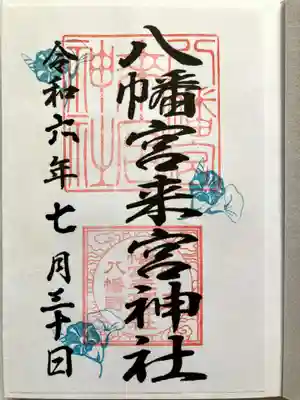 八幡宮来宮神社
令和六年七月三十日